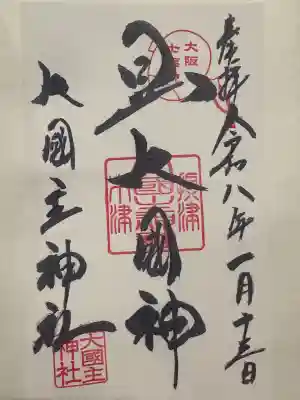 奉拝 令和八年一月十三日
大阪
七福神
大国神
摂津
木津
大國主神社
大國主
神社